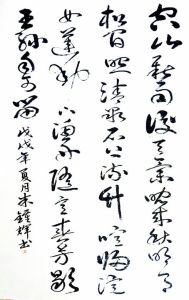 空山新雨後天氣晚來秋明月
松間照清泉石上流竹喧歸浣
女蓮動下漁舟隨意春芳歇
王孫自可留
戊戌年夏月朱鍾輝書